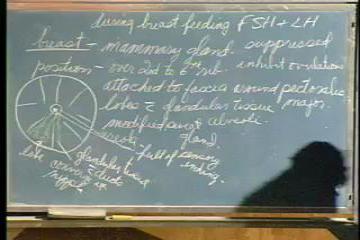 during breast feeding FSH + LH
breast - mammary gland suppressed
position - over 2nd to 6th rib. inhibit ovulation
attached to fascia around pectoralis
lobes c̄ glandular tissue major.
modified sweat alveoli.
gland.
full of sensory
ending.
glandular tissue
lobe converge c̄ ducts
nipple